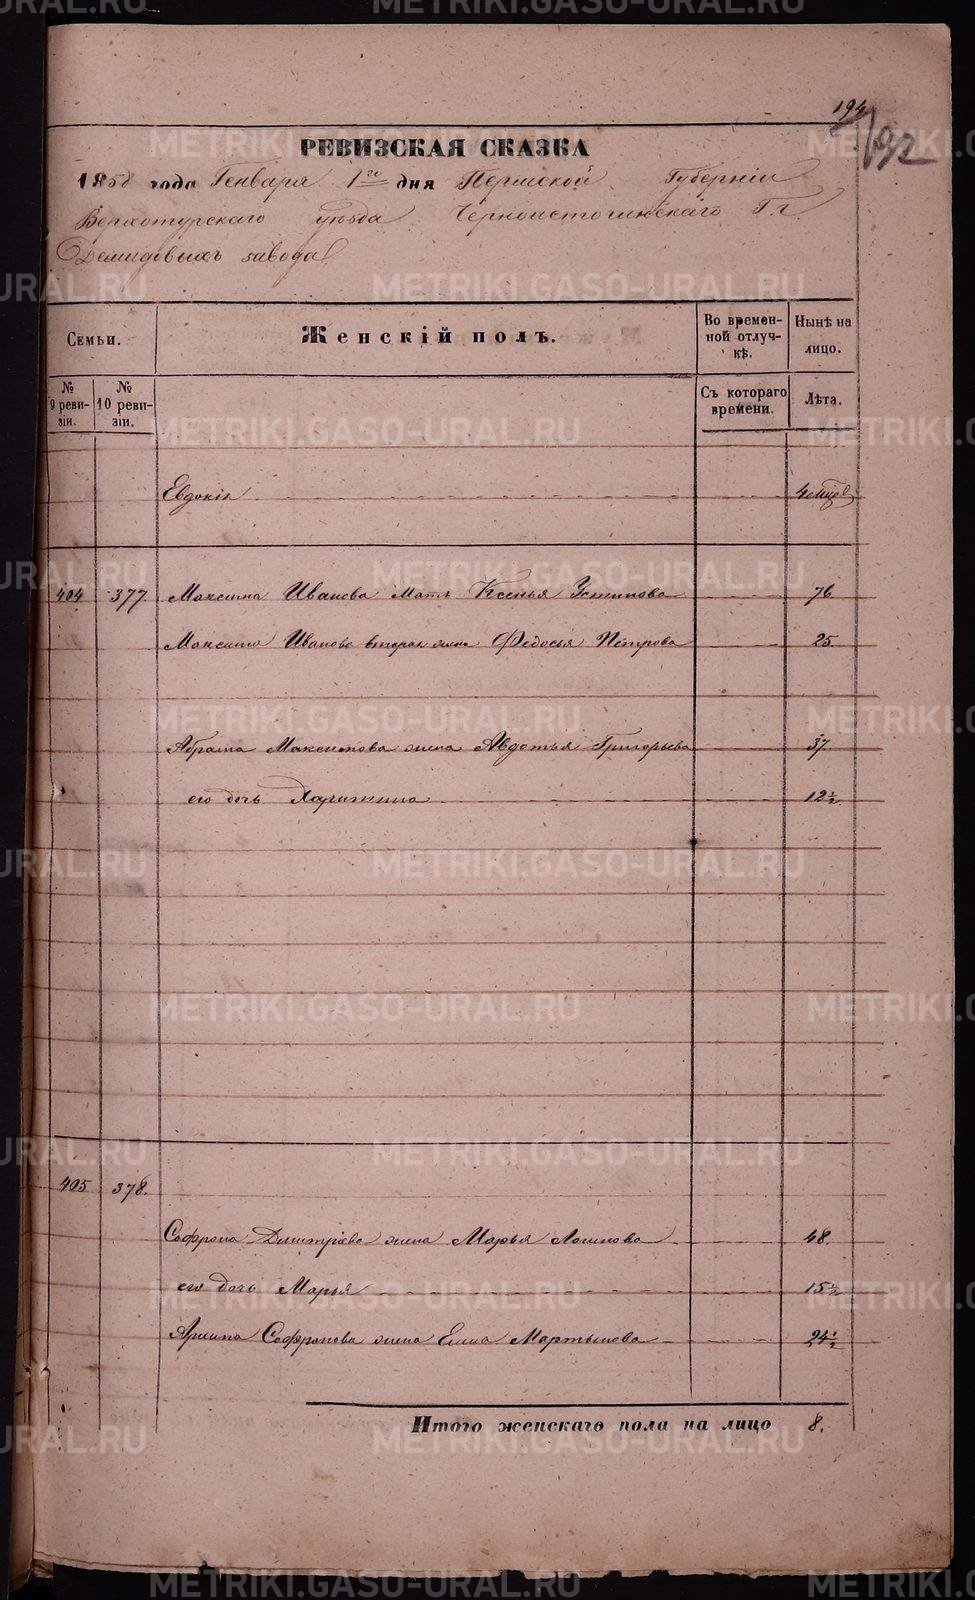 194
192
РЕВИЗСКАЯ СКАЗКА
1858 года Генваря 1го дня Пермской Губерніи
Верхотурскаго уѣзда Черноисточинскаго Г.г.
Демидовыхъ завода
Семьи.
Женскій полъ.
Во временной отлучкѣ.
Нынѣ на лицо.
№ 9 ревизіи.
№ 10 ревизіи.
Съ котораго времени.
Лѣта.
Евдокія 4 мѣцов
404 377 Максима Иванова мать Ксенья Устинова 76
Максима Иванова вторая жена Федосья Петрова 25.
Абрама Максимова жена Авдотья Григорьева 37.
его дочь Харитина 12½.
405 378.
Софрона Дмитріева жена Марья Логинова 48.
его дочь Марья 15½
Софронова жена Елена Мартынова 24½
Итого женскаго пола на лицо 8.
METRIKI.GASO-URAL.RU